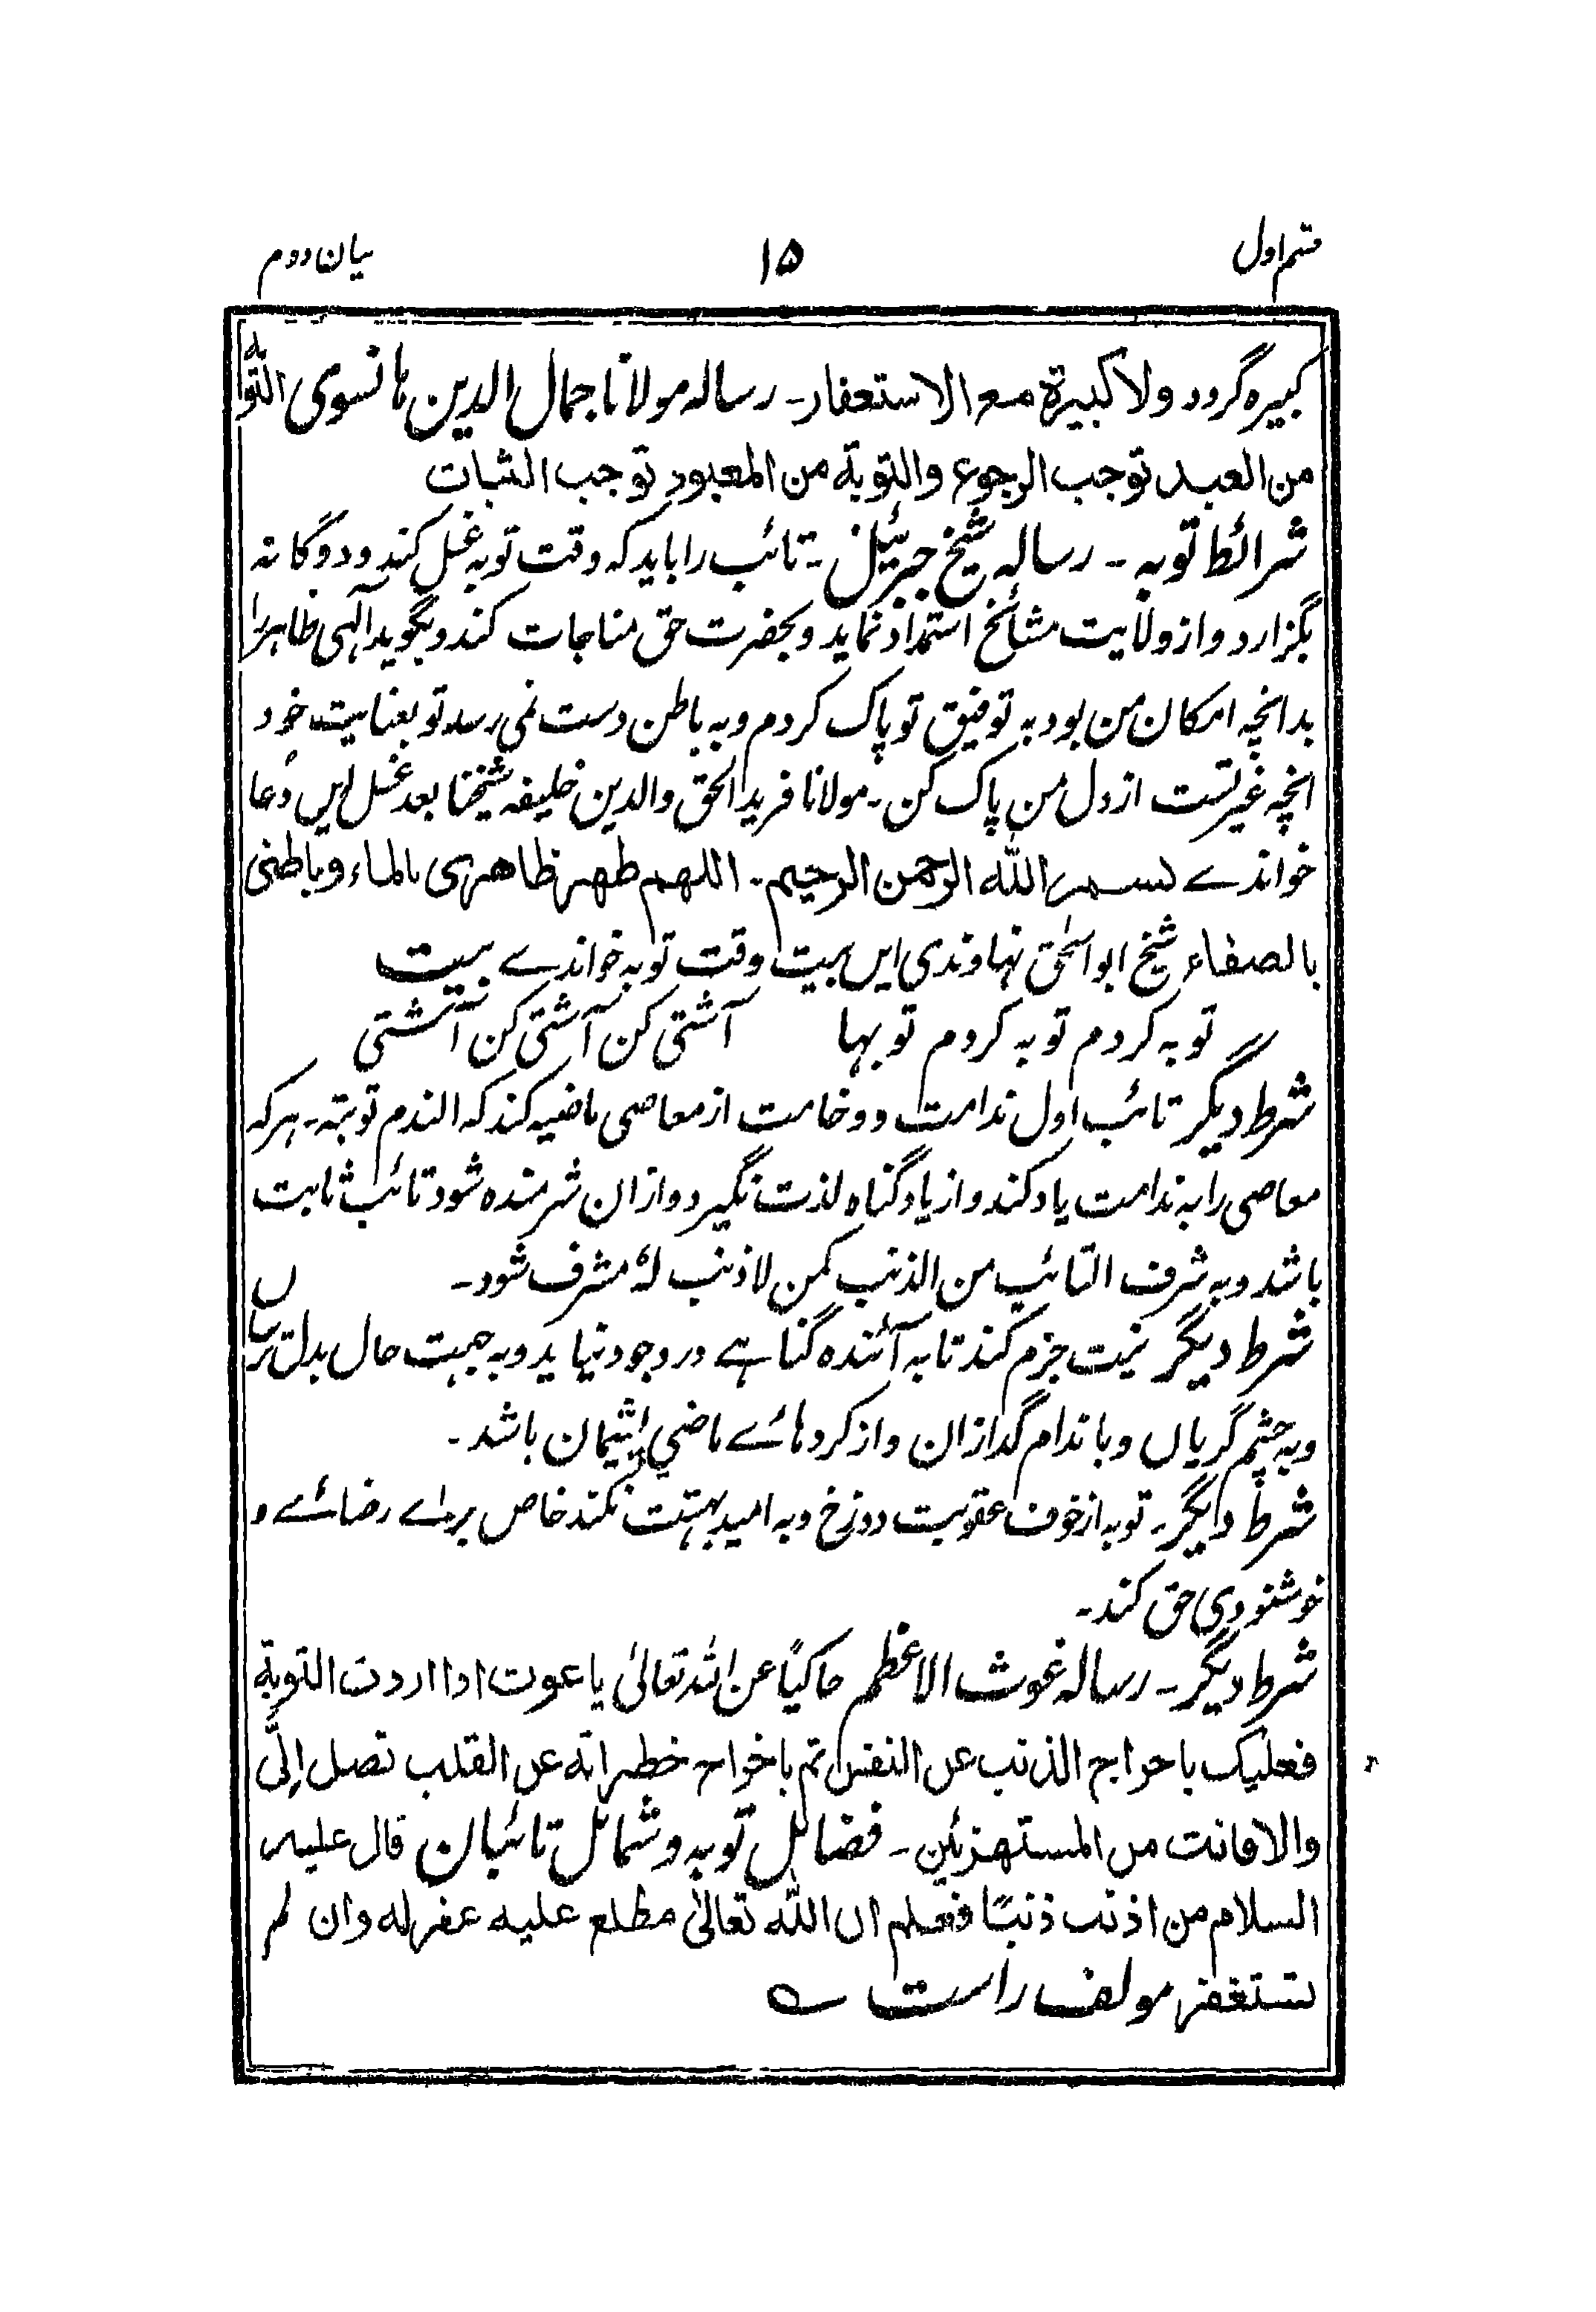 قسم اول
۱۵
بیان دوم
کبیرہ گردد ولا کبیرۃ مع الاستعفار۔ رسالہ مولانا جمال الدین ہانسوی التوبۃ
من العبد توجب الرجوع والتوبۃ من المعبود توجب الثبات
شرائط توبہ ۔ رسالہ شیخ جبرئیل ۔ تائب را باید کہ وقت توبہ غسل کند و دوگانہ
بگزارد و از ولایت مشائخ استمداد نماید و بحضرت حق مناجات کند و بگوید الٰہی ظاہر را
بدانچہ امکان من بود بہ توفیق تو پاک کردم و بہ باطن دست نمی رسد تو بعنایت خود
انچہ غیر تست از دل من پاک کن ۔ مولانا فرید الحق والدین خلیفہ شیخنا بعد غسل ایں دُعا
خواندے بسم اللہ الرحمن الرحیم ۔ اللھم طھر ظاھری بالماء و باطنی
بالصفاء شیخ ابو اسحٰق نہاوندی ایں بیت وقت توبہ خواندے بیت
توبہ کردم توبہ کردم توبہا آشتی کن آشتی کن آشتی
شرط دیگر تائب اول ندامت و وخامت از معاصی ماضیہ کند کہ الندم توبتہ۔ ہر کہ
معاصی را بہ ندامت یاد کند و از یاد گناہ لذت نگیرد و ازان شرمندہ شود تائب ثابت
باشد و بہ شرف التائب من الذنب کمن لا ذنب لہٗ مشرف شود۔
شرط دیگر نیت جزم کند تا بہ آئندہ گناہے در وجود نیاید و بہ جہت حال بدل ترساں
و بہ چشم گریاں و باندام گدازان و از کردہائے ماضی پشیمان باشد ۔
شرط دیگر۔ توبہ از خوف عقوبت دوزخ و بہ امید بہشت نکند خاص براے رضائے و
خوشنودی حق کند۔
شرط دیگر۔ رسالہ غوث الاعظم حاکیًا عن اللہ تعالیٰ یا عوت ادا اردت التوبۃ
فعلیک باحراج الذنب عن النفس ثم باخراج خطراتہ عن القلب تصل اِلیَّ
والا فانت من المستھزئین ۔ فضائل توبہ و شمائل تائبان قال علیہ
السلام من اذنب ذنبًا فعلم ان اللہ تعالیٰ مطلع علیہ عفر لہ وان لم
یستغفر مولف راست ؎